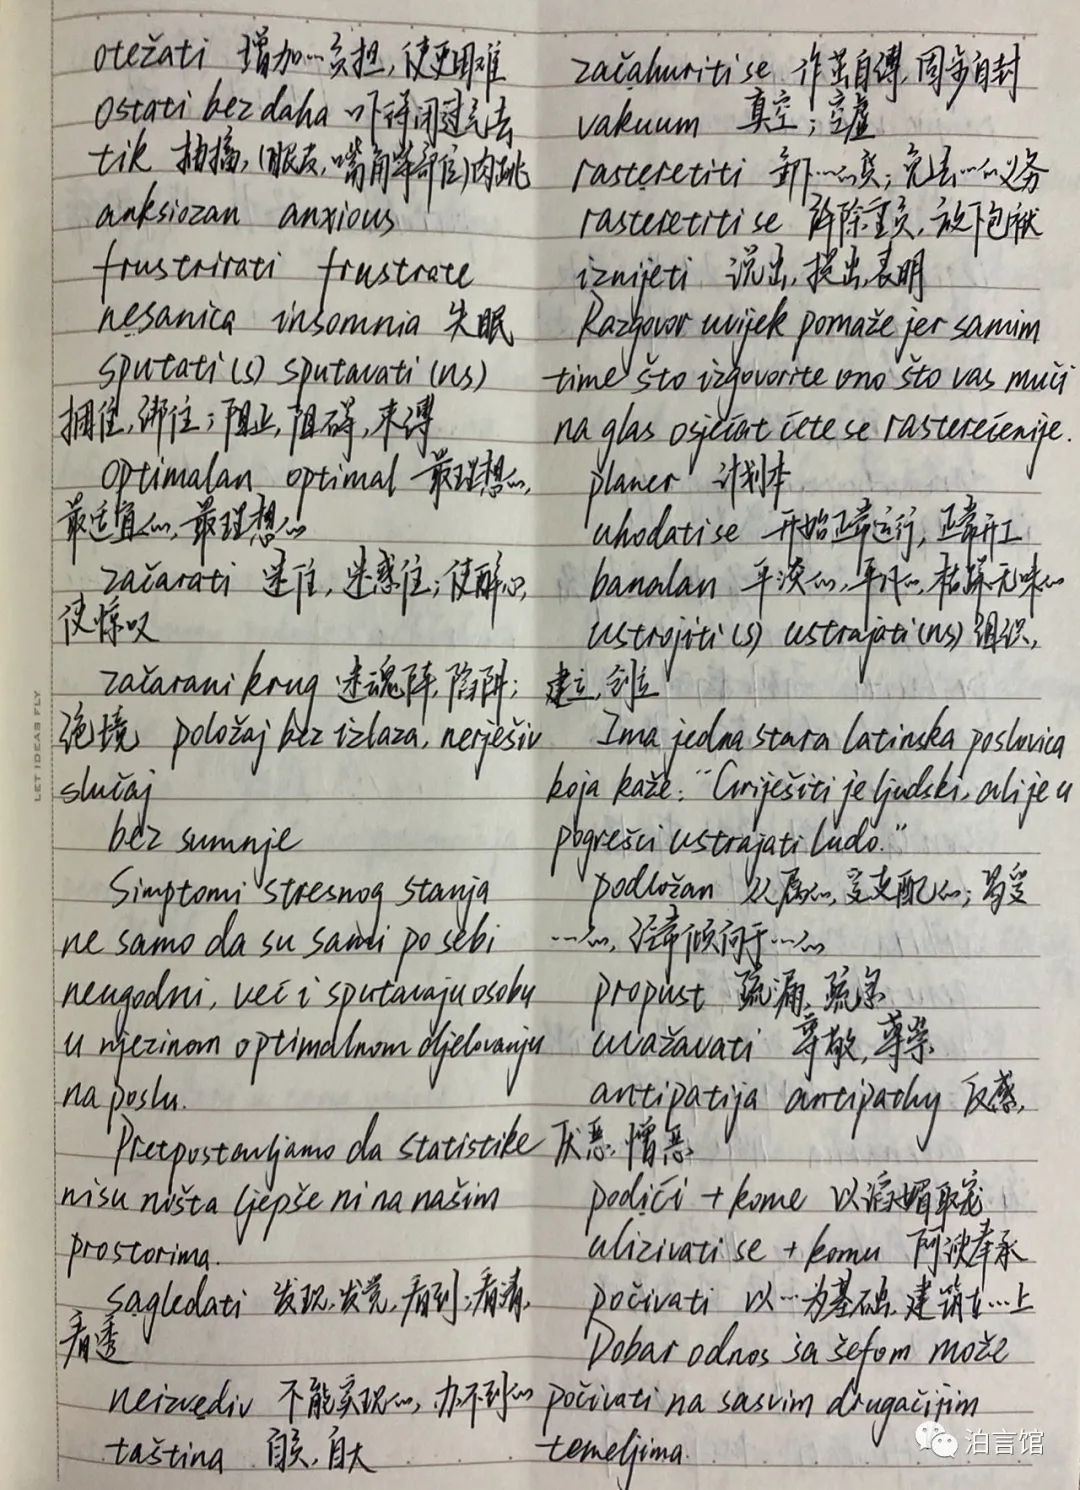 otežati 增加…负担，使更困难
ostati bez daha 吓得闭过气去
tik 抽搐，(眼皮，嘴角等部位)肉跳
anksiozan anxious
frustrirati frustrate
nesanica insomnia 失眠
sputati (s) sputavati (ns)
捆住，绑住；阻止，阻碍，束缚
optimalan optimal 最理想的，
最适宜的，最理想的
začarati 迷住，迷惑住；使醉心，
使惊叹
začarani krug 迷魂阵，陷阱；
绝境 položaj bez izlaza, nerješiv
slučaj
bez sumnje
Simptomi stresnog stanja
ne samo da su sami po sebi
neugodni, već i sputavaju osobu
u njezinom optimalnom djelovanju
na poslu.
Pretpostavljamo da statistike
nisu ništa ljepše ni na našim
prostorima.
sagledati 发现，发觉，看到；看清，
看透
neizvediv 不能实现的，办不到的
taština 自负，自大
začahuriti se 作茧自缚，固步自封
vakuum 真空；空虚
rasteretiti 卸下…的…；免去…的义务
rasteretiti se 解除重负，放下包袱
iznijeti 说出，提出，表明
Razgovor uvijek pomaže jer samim
time što izgovorite ono što vas muči
na glas osjećat ćete se rasterećenije.
planer 计划本
uhodati se 开始正常运行，正常开工
banalan 平淡的，平凡的，枯燥无味的
ustrojiti (s) ustrajati (ns) 组织，
建立，创立
Ima jedna stara latinska poslovica
koja kaže: "Griješiti je ljudski, ali je u
pogrešci ustrajati ludo."
podložan 从属的，受支配的；易受
…的，经常倾向于…的
propust 疏漏，疏忽
uvažavati 尊敬，尊崇
antipatija antipathy 反感，
厌恶，憎恶
podići + kome 以谄媚取宠
ulizivati se + komu 阿谀奉承
počivati 以…为基础，建筑在…上
Dobar odnos sa šefom može
počivati na sasvim drugačijim
temeljima.
LET IDEAS FLY
泊言馆